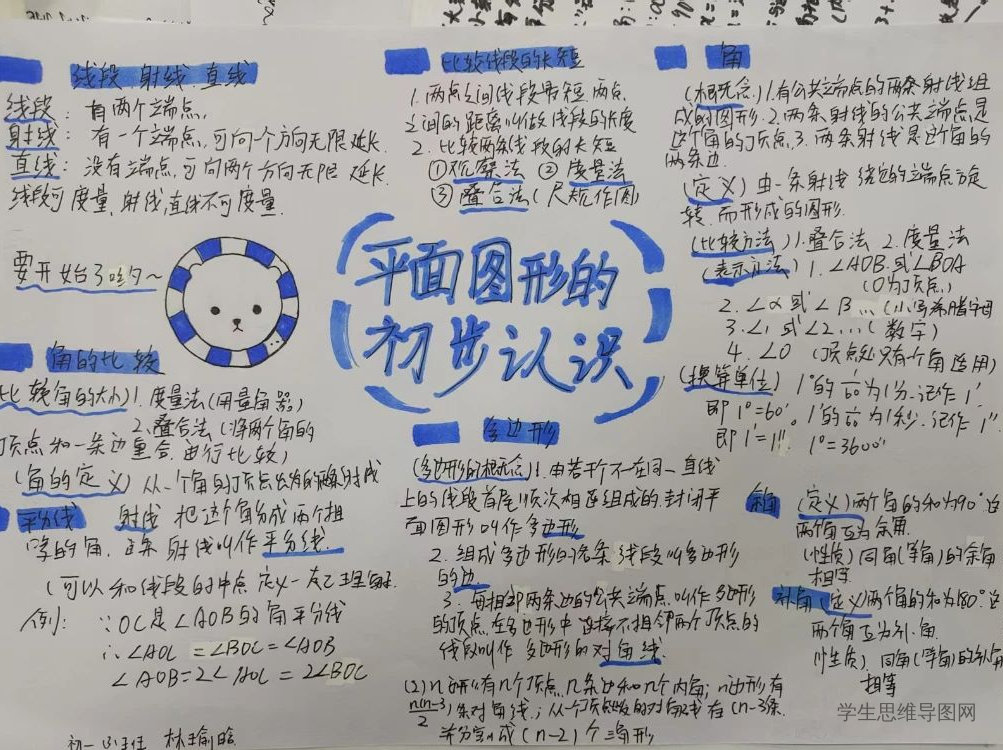 线段 射线 直线
线段：有两个端点.
射线：有一个端点,可向一个方向无限延长.
直线：没有端点,可向两个方向无限延长
线段可度量,射线,直线不可度量.
要开始了哟~
角的比较
比较角的大小)1.度量法(用量角器)
2.叠合法(将两个角的
顶点和一条边重合,进行比较)
(角的定义)从一个角的顶点出发的
平分线 射线 把这个角分成两个相
等的角,这条射线叫作平分线.
(可以和线段的中点定义一起理解.
例: ∵OC是∠AOB的角平分线
∴∠AOC=∠BOC=∠AOB
∠AOB=2∠AOC=2∠BOC
初一
比较线段的长短
1.两点之间线段最短,两点
之间的距离叫做线段的长度
2.比较两条线段的长短
①观察法 ②度量法
③叠合法(尺规作图)
平面图形的
初步认识
多边形
(多边形的概念)1.由若干个不在同一直线
上的线段首尾顺次相连组成的封闭平
面图形叫作多边形
2.组成多边形的各条线段叫多边形
的边.
3.每相邻两条边的公共端点叫作多边形
的顶点,在多边形中连接不相邻两个顶点的
线段叫作多边形的对角线.
(2)n边形有几个顶点,几条边和几个内角;n边形有
n(n-3)/2条对角线;从一个顶点出发的对角线有(n-3)条.
并分割成(n-2)个三角形
角
(概念)1.有公共端点的两条射线组
成的图形.2.两条射线的公共端点是
这个角的顶点,3.两条射线是这个角的
两条边.
(定义)由一条射线绕它的端点旋
转而形成的图形.
(比较方法)1.叠合法 2.度量法
(表示方法)1.∠AOB或∠BOA
(O为顶点)
2.∠α或∠β...(小写希腊字母
3.∠1或∠2...(数字)
4.∠O(顶点处只有个角适用)
(换算单位)1°的1/60为1分.记作1′
即1°=60′.1′的1/60为1秒.记作1″
即1′=1″. 1°=3600″
余角 (定义)两个角的和为90°
两个角互为余角
(性质)同角(等角)的余角
相等
补角 (定义)两个角的和为180°
两个角互为补角.
(性质).同角(等角)的补角
相等
学生思维导图网